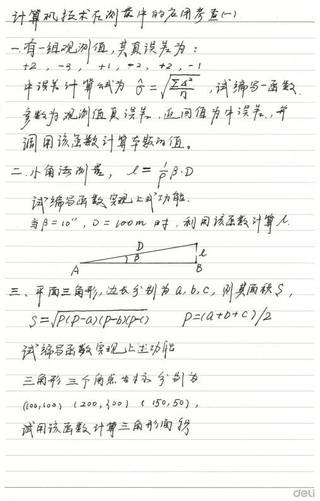 计算机技术在测量中的应用考查(一)
一.有一组观测值,其真误差为:
+2, -3, +1, -2, +2, -1
中误差计算公式为 σ̂=√(ΣΔ²/n) ,试编写一函数.
参数为观测值真误差.返回值为中误差.并
调用该函数计算本题的值。
二.小角法测量, l=1/ρ β·D
试编写函数实现上式功能.
当β=10″, D=100m 时,利用该函数计算l.
D
β
l
A
B
三、平面三角形,边长分别为a,b,c,则其面积S,
S=√P(P-a)(P-b)(P-c) P=(a+b+c)/2
试编写函数实现上述功能
三角形三个角点坐标分别为
(100,100) (200,200) (150,50),
试用该函数计算三角形面积
deli